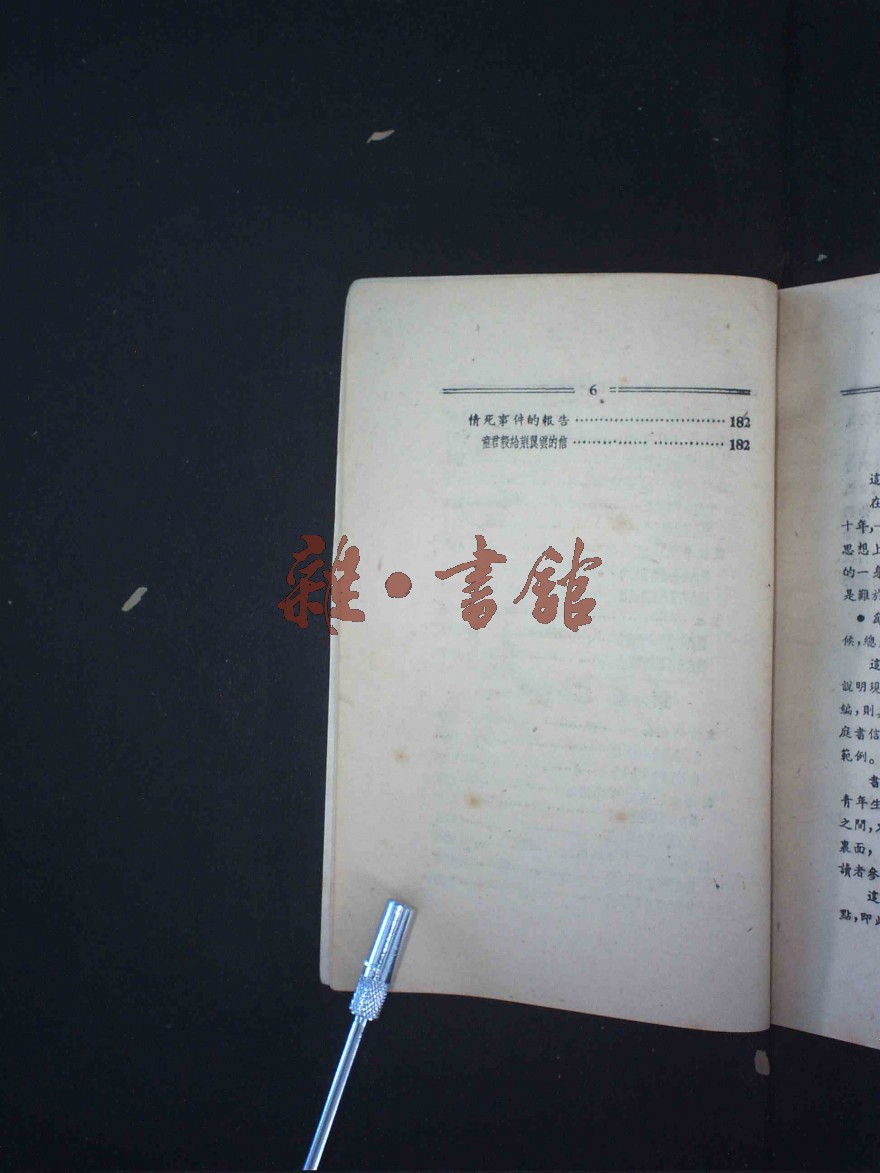 6
情死事件的報告 182
182
雜·書館
這
在
十年,一
思想上
的一
是難於
候,總
這
說明現
編,則
庭書信
範例。
書
青年生
之間,
裏面,
讀者參
這
點,即此